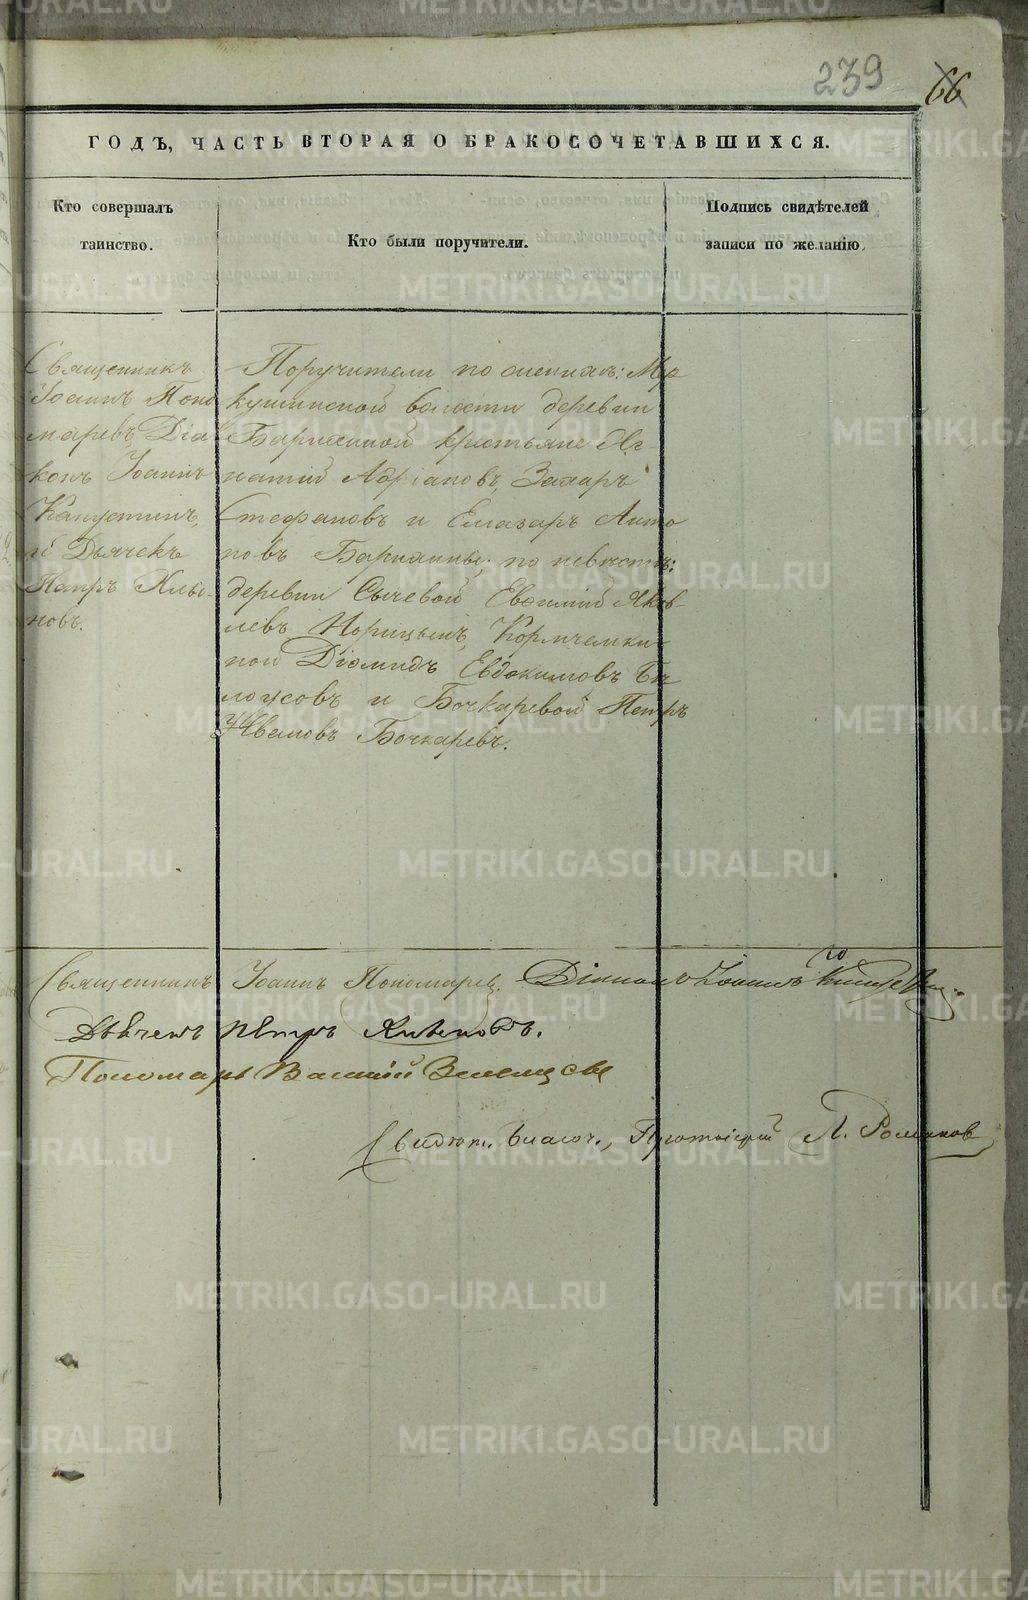 239 66
ГОДЪ, ЧАСТЬ ВТОРАЯ О БРАКОСОЧЕТАВШИХСЯ.
Кто совершалъ
таинство.
Кто были поручители.
Подпись свидѣтелей
записи по желанію.
Священникъ
Іоаннъ Поно
маревъ Діа
конъ Іоаннъ
Капустинъ,
и Дьячекъ
Петръ
новъ.
Поручители по женихѣ:
кушинской волости деревни
крестьяне Иг-
натій Адріановъ, Захаръ
Стефановъ и Елеазаръ Анто
новъ по невѣстѣ:
деревни Сычевой Евфимій Яков-
левъ Норицынъ,
ной Діомидъ Евдокимовъ Бѣ
лоусовъ и Бочкаревой Петръ
Ивановъ Бочкаревъ.
Священникъ Іоаннъ Пономаревъ. Діаконъ Іоаннъ
Дьячекъ Петръ
Пономарь Василій
Свидѣт. Благоч., Протоіерей Л. Романов
METRIKI.GASO-URAL.RU